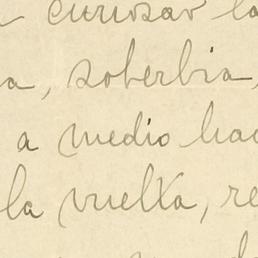 curiosar la
a, soberbia,
a medio hac
la vuelta, re